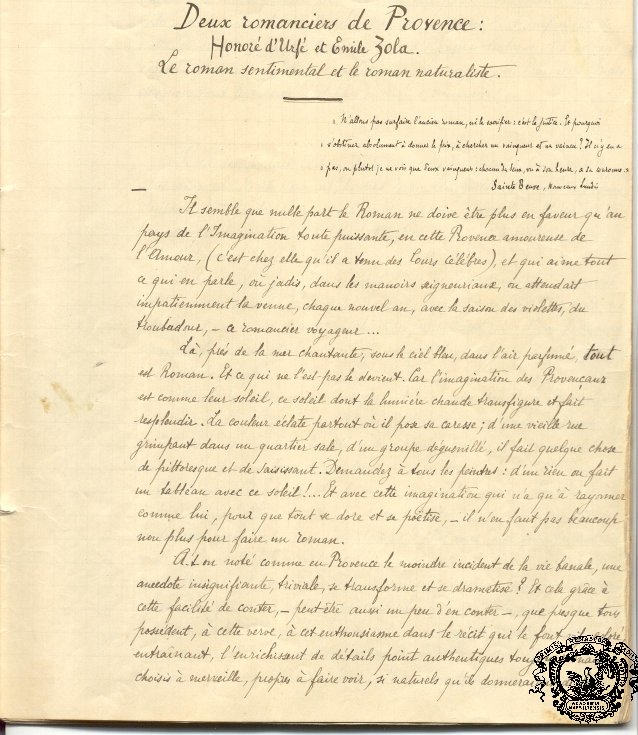 Deux romanciers de Provence :
Honoré d'Urfé et Emile Zola.
Le roman sentimental et le roman naturaliste.
« N'allons pas surfaire l'ancien roman, ni le sacrifier : c'est la justice. Et pourquoi
« s'obstiner absolument à donner le prix, à chercher un vainqueur et un vaincu ? Il n'y en a
« pas, ou plutôt je ne vois que deux vainqueurs : chacun des deux, vu à son heure, a sa couronne. »
Sainte Beuve, Nouveaux Lundis
Il semble que nulle part le Roman ne doive être plus en faveur qu'au
pays de l'Imagination toute puissante, en cette Provence amoureuse de
l'Amour, (c'est chez elle qu'il a tenu des Cours célèbres), et qui aime tout
ce qui en parle, où jadis, dans les manoirs seigneuriaux, on attendait
impatiemment la venue, chaque nouvel an, avec la saison des violettes, du
troubadour, – ce romancier voyageur...
Là, près de la mer chantante, sous le ciel bleu, dans l'air parfumé, tout
est Roman. Et ce qui ne l'est pas le devient. Car l'imagination des Provençaux
est comme leur soleil, ce soleil dont la lumière chaude transfigure et fait
resplendir. La couleur éclate partout où il pose sa caresse ; d'une vieille rue
grimpant dans un quartier sale, d'un groupe déguenillé, il fait quelque chose
de pittoresque et de saisissant. Demandez à tous les peintres : d'un rien on fait
un tableau avec ce soleil !... Et avec cette imagination qui n'a qu'à rayonner
comme lui, pour que tout se dore et se poëtise, – il n'en faut pas beaucoup
non plus pour faire un roman.
A-t-on noté comme en Provence le moindre incident de la vie banale, une
anecdote insignifiante, triviale, se transforme et se dramatise ? Et cela grâce à
cette facilité de conter, – peut-être aussi un peu d'en conter –, que presque tous
possèdent, à cette verve, à cet enthousiasme dans le récit qui le font
entraînant, l'enrichissant de détails point authentiques
choisis à merveille, propres à faire voir, si naturels qu'ils
ACADEMIA
MASSILIENSIS